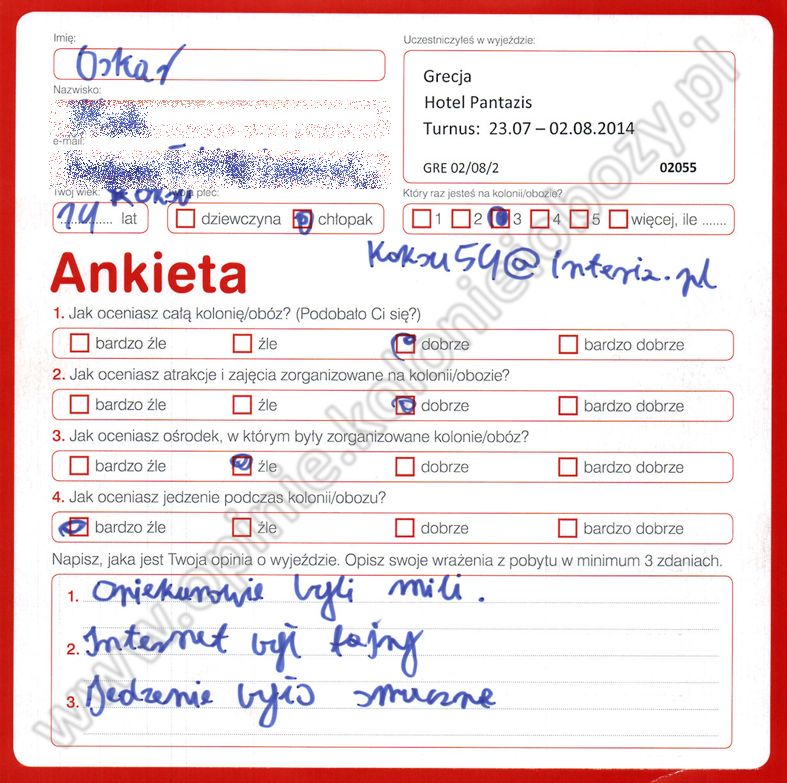 Imię:
Oskar
Uczestniczyłeś w wyjeździe:
Grecja
Hotel Pantazis
Turnus: 23.07 – 02.08.2014
GRE 02/08/2 02055
Nazwisko:
e-mail:
Twój wiek: płeć:
Koksu
14 lat dziewczyna chłopak
Który raz jesteś na kolonii/obozie?
1 2 3 4 5 więcej, ile .......
Koksu54@interia.pl
Ankieta
1. Jak oceniasz całą kolonię/obóz? (Podobało Ci się?)
bardzo źle źle dobrze bardzo dobrze
2. Jak oceniasz atrakcje i zajęcia zorganizowane na kolonii/obozie?
bardzo źle źle dobrze bardzo dobrze
3. Jak oceniasz ośrodek, w którym były zorganizowane kolonie/obóz?
bardzo źle źle dobrze bardzo dobrze
4. Jak oceniasz jedzenie podczas kolonii/obozu?
bardzo źle źle dobrze bardzo dobrze
Napisz, jaka jest Twoja opinia o wyjeździe. Opisz swoje wrażenia z pobytu w minimum 3 zdaniach.
1. Opiekunowie byli mili.
2. Internet był fajny
3. Jedzenie było smaczne
www.opinie.kolonieobozy.pl